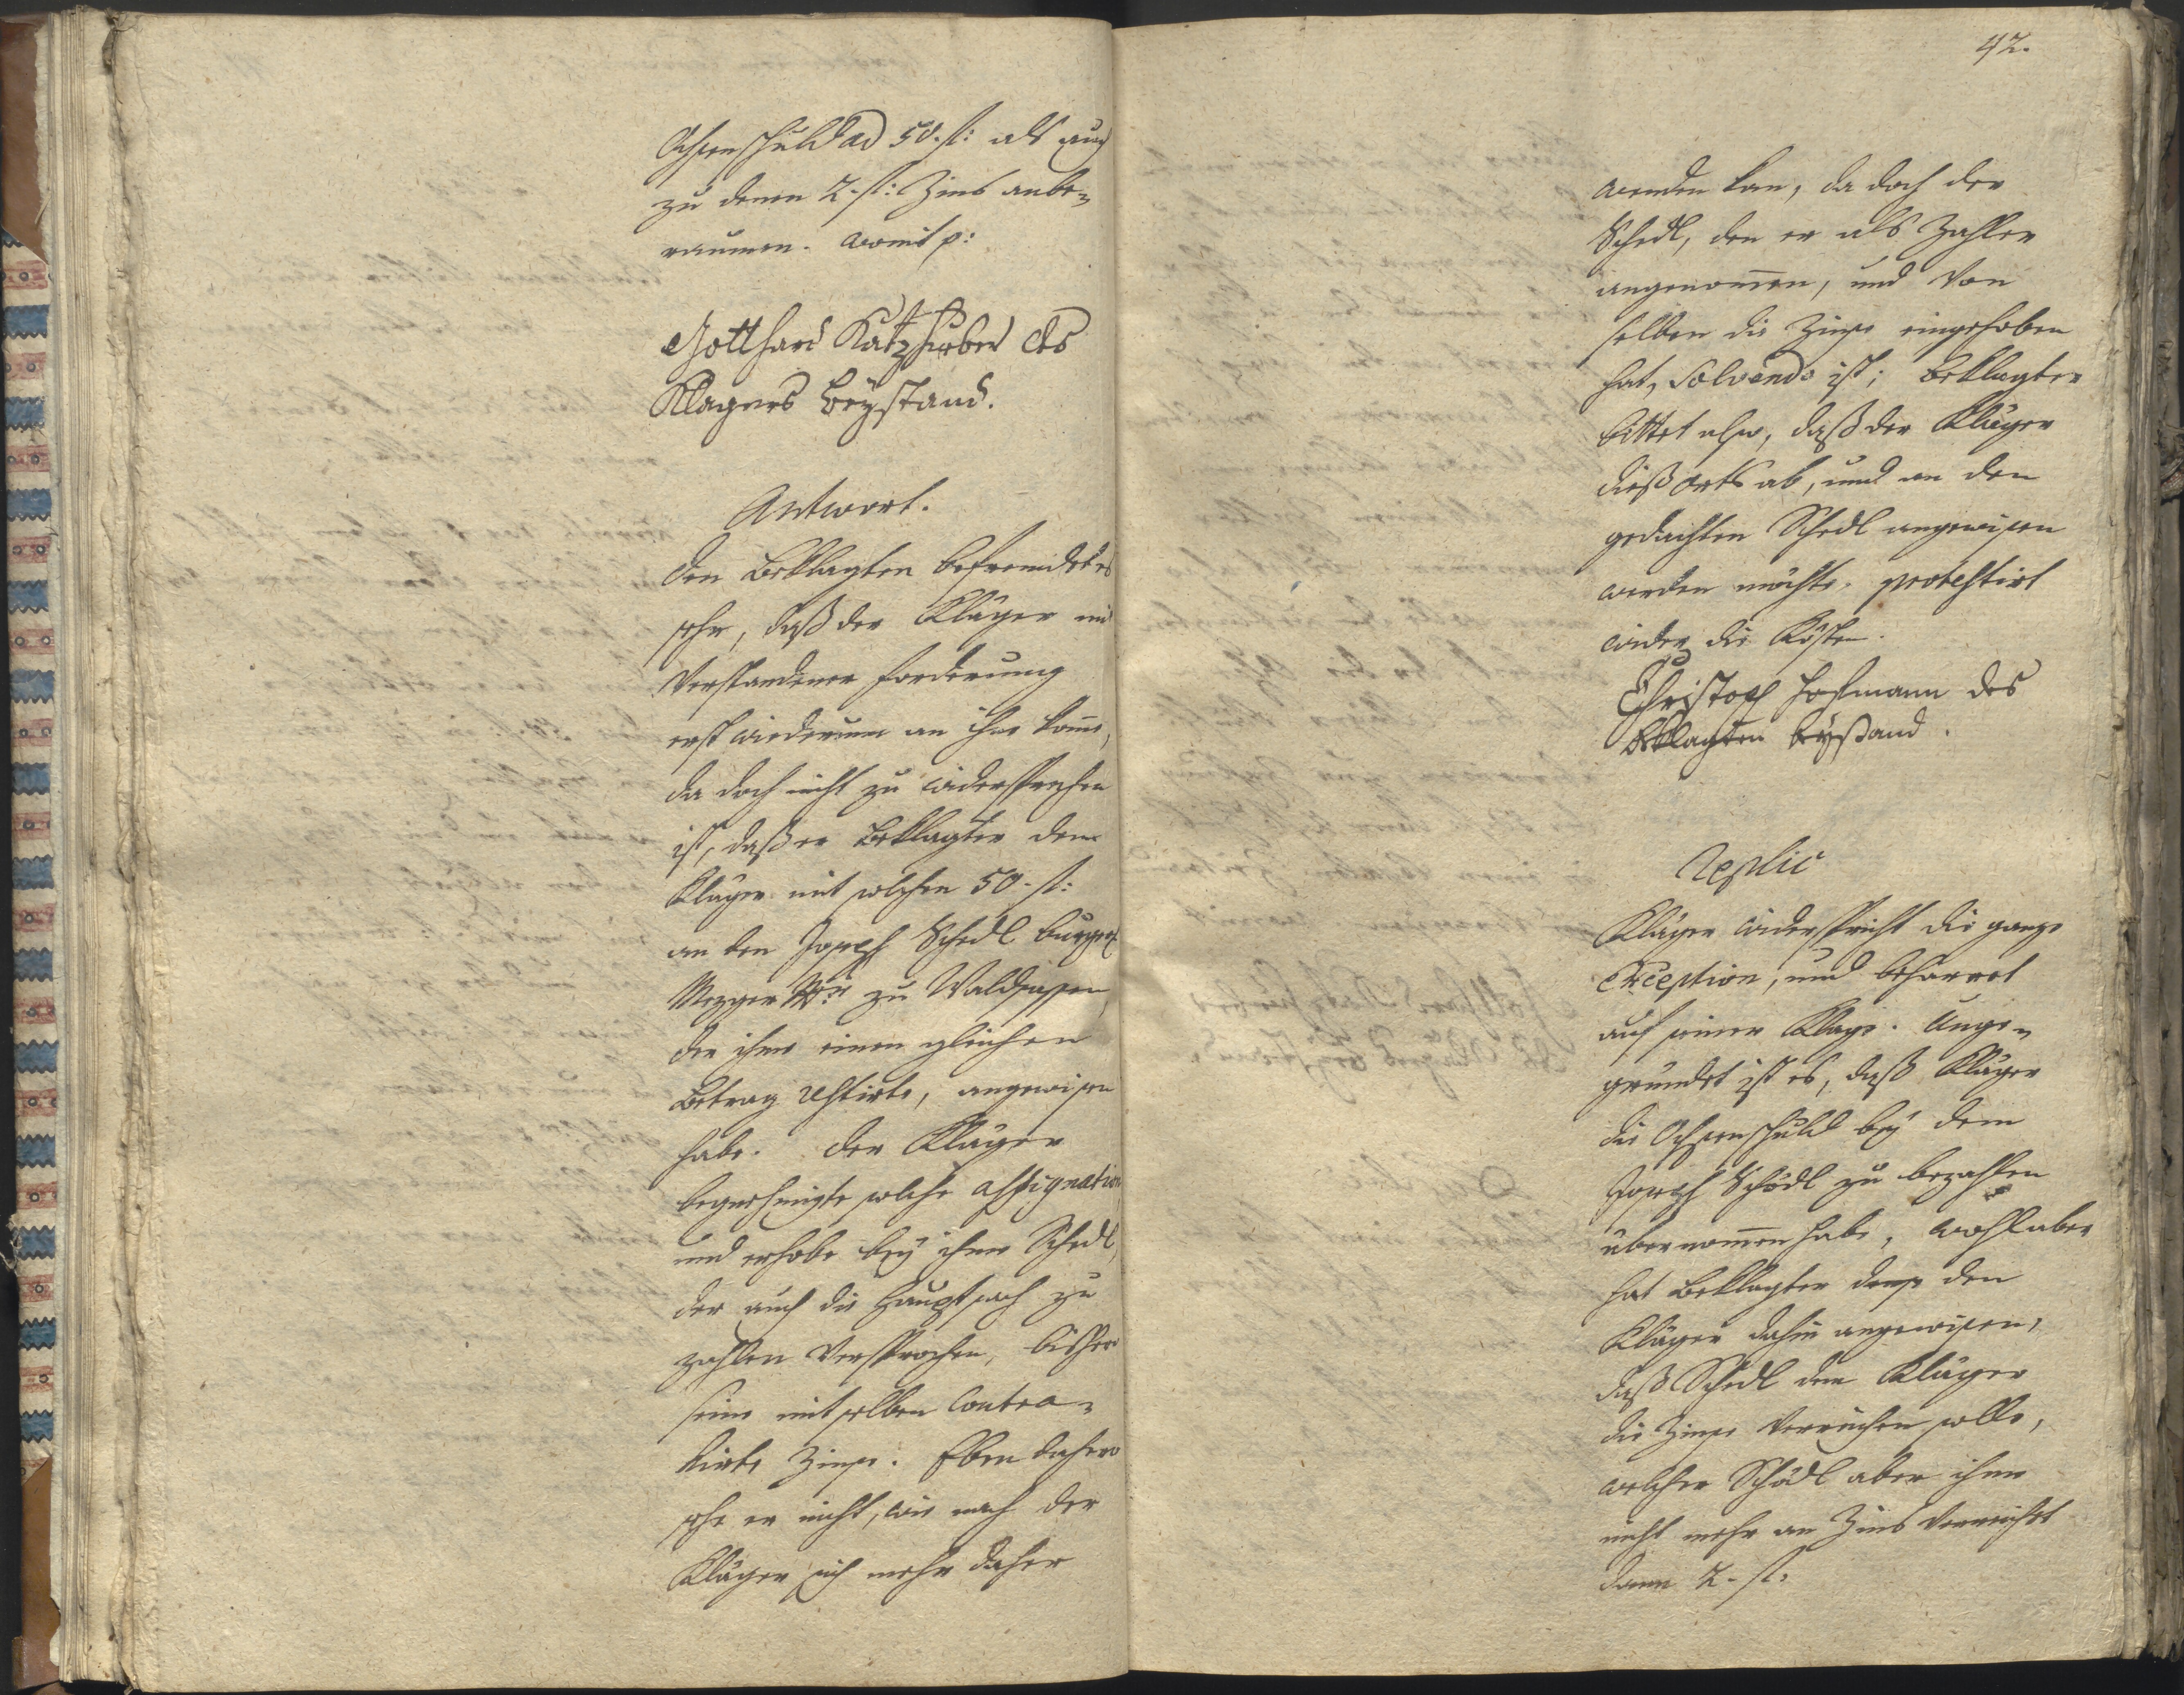 Ochsenschuld ad 50. fl: als auch
zu denen 2. fl: Zins anbe-
raumen. womit p:
Gotthard Katzhueber des
Klagers Beystand.
Antwort.
Den Beklagten befremdet es
sehr, daß der Kläger mit
verstandener Forderung
erst wiederum an ihne kome,
da doch nicht zu widersprechen
ist, daß er Beklagter dem
Kläger mit solchen 50. fl:
an den Joseph Schedl burgerl
Mezger zu Waldsassen,
der ihme einen gleichen
Betrag restirte, angewisen
habe. Der Kläger
begnehmigte solche assignation
und erhobe bey ihme Schedl,
der auch die Hauptsach zu
zahlen versprochen, bishero
seine mit selben contra-
hirte Zinse. Eben dahero
sehe er nicht, wie nach der
Kläger sich mehr daher
42.
wenden kan, da doch der
Schedl, den er als Zahler
angenomen, und von
selben die Zinse eingehoben
hat, solvendo ist; Beklagter
bittet also, daß der Kläger
dießorts ab, und an den
gedachten Schedl angewisen
werden möchte. protestirt
wider die Kösten.
Christoph Hofmann des
Beklagten beystand.
Replic
Kläger widerspricht die ganze
Exception, und beharret
auf seiner Klage. Unge-
gründet ist es, daß Kläger
die Ochsenschuld bey dem
Joseph Schödl zu bezahlen
übernomen habe, wohl aber
hat Beklagter den
Kläger dahin angewisen,
daß Schedl dem Kläger
die Zinse verreichen solle,
welcher Schödl aber ihme
nicht mehr an Zins verreicht
dann 2. fl: